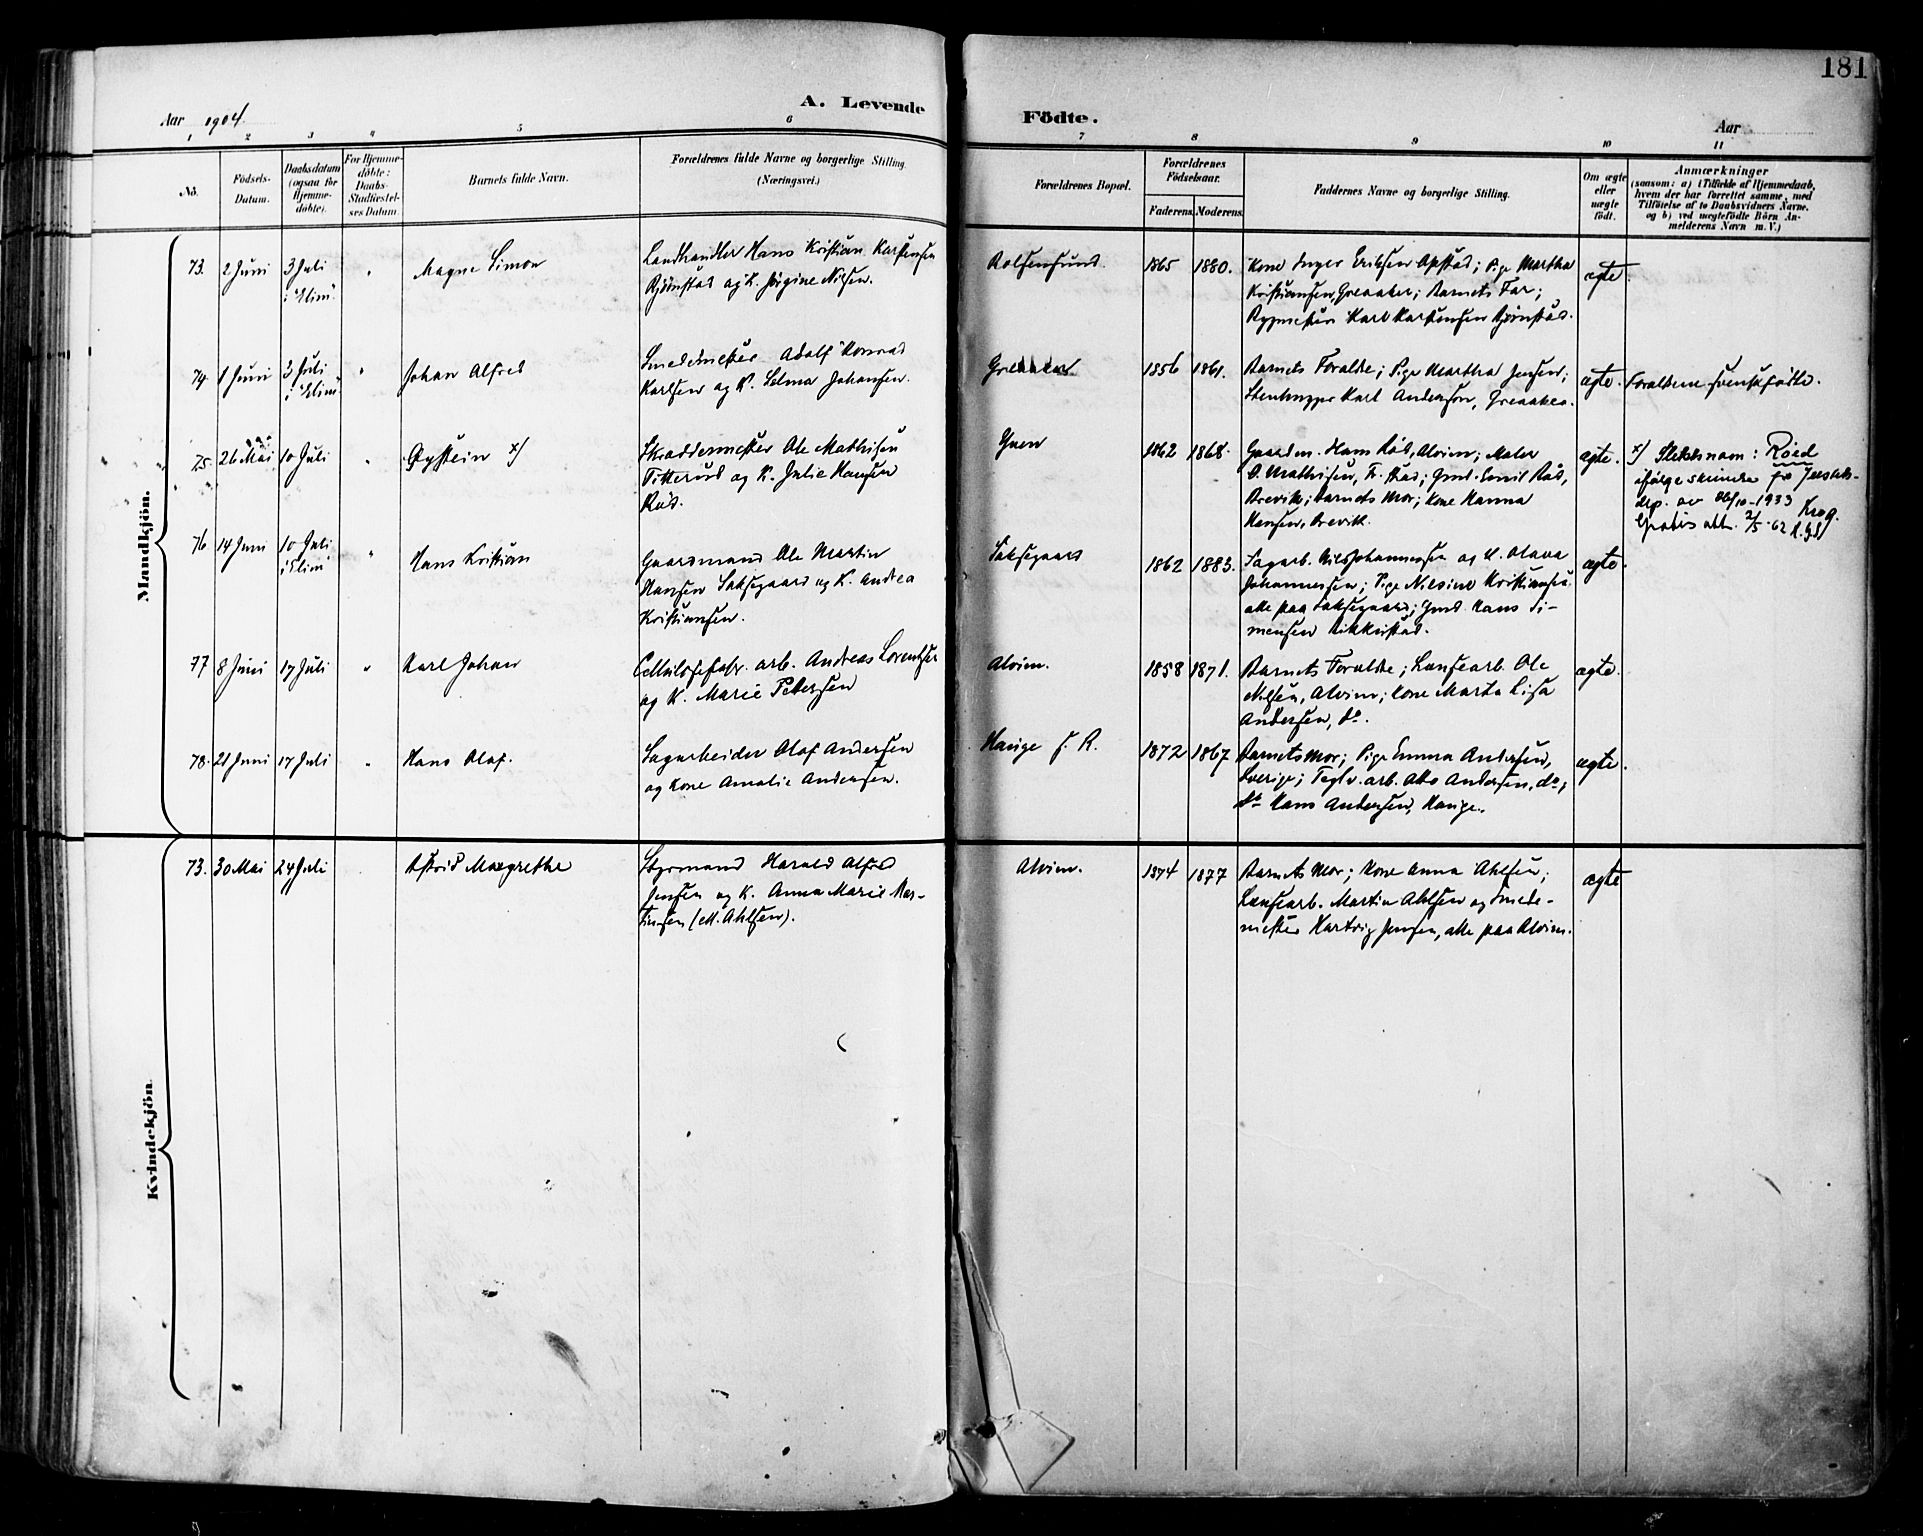 181
A. Levende
Födte.
Aar 1904.
Aar
1 2 3 4 5 6 7 8 9 10 11
No.
Födsels-
Datum.
Daabsdatum
(ogsaa for
Hjemme-
döbte).
For Hjemme-
döbte:
Daabs-
Stadfæstel-
ses Datum.
Barnets fulde Navn.
Forældrenes fulde Navne og borgerlige Stilling.
(Næringsvei.)
Forældrenes Bopæl.
Forældrenes
Födselsaar.
Faderens. Moderens.
Faddernes Navne og borgerlige Stilling.
Om ægte
eller
uægte
födt.
Anmærkninger
(saasom: a) i Tilfælde af Hjemmedaab,
hvem der har forrettet samme, med
Tilföielse af to Daabsvidners Navne.
og b) ved uægtefödte Börn An-
melderens Navn m. V.)
Mandkjön.
73. 2 Juni 3 Juli " Magne Simon
i "Elim".
Landhandler Hans Kristian Karstensen
Bjørnstad og K. Jørgine Nilsen.
Rolfsøysund. 1865 1880.
Kone Inger Eriksen Opstad; Pige Martha
Kristiansen, Greaaker; Barnets Far;
Rypmester Karl Karstensen Bjørnstad.
ægte.
74. 1 Juni 3 Juli " Johan Alfred
i "Elim"
Smedemester Adolf Konrad
Karlsen og K. Selma Johansen.
Greaaker 1856 1861.
Barnets Forældre; Pige Martha Jensen;
Stenhugger Karl Anderson, Greaaker.
ægte. Forældrene svenskfødte.
75. 26 Mai 10 Juli " Øystein x)
Skræddermester Ole Mathisen
Titterud og K. Julie Hansen
Rød.
Yven 1862 1868.
Gaardm. Hans Rød, Alvim; Maler
O. Mathisen, Fr.stad; Gmd. Emil Rød,
Brevik; Barnets Mor; Kone Hanna
Hansen, Brevik.
ægte. x) Slektsnavn: Røed
ifølge skrivelse fra Justits-
dep. av 26/10-1933 Krog.
Gratis att. 2/5-62
76 14 Juni 10 Juli " Hans Kristian
i "Elim"
Gaardmand Ole Martin
Hansen Laksegaard og K. Andrea
Kristiansen.
Laksegaard 1862 1883.
Sagarb. Nils Johannessen og K. Olava
Johannessen; Pige Nilsine Kristiansen
alle paa Laksegaard; Gmd. Hans Si-
mensen Rikkestad.
ægte.
77 8 Juni 17 Juli " Karl Johan
Cellulosefabr. arb. Andreas Lorentzen
og K. Marie Petersen
Alvim. 1858 1871.
Barnets Forældre; Lensearb. Ole
Nilsen, Alvim; Kone Marta Lisa
Andersen, do.
ægte.
78. 21 Juni 17 Juli " Hans Olaf.
Sagarbeider Olaf Andersen
og Kone Amalie Andersen.
Hauge f. R. 1872 1867
Barnets Mor; Pige Emma Andersen,
Sverige; Teglv. arb. Otto Andersen, do;
do Hans Andersen, Hauge.
ægte.
Kvindekjön.
73. 30 Mai 24 Juli Astrid Margrethe
Styrmand Harald Alfred
Jensen og K. Anna Marie Mar-
tinsen (M. Ahlsen).
Alvim. 1874 1877
Barnets Mor; Kone Anna Ahlsen;
Lensearb. Martin Ahlsen og Smede-
mester Hartvig Jensen, alle paa Alvim.
ægte